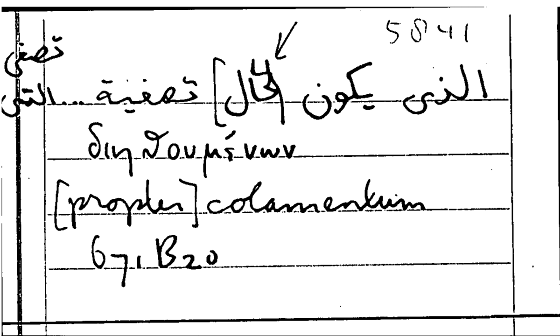 5841
الذى يكون [لحال] تصفية... التى
تصفى
διηθουμένων
[propter] colamentum
671 B20